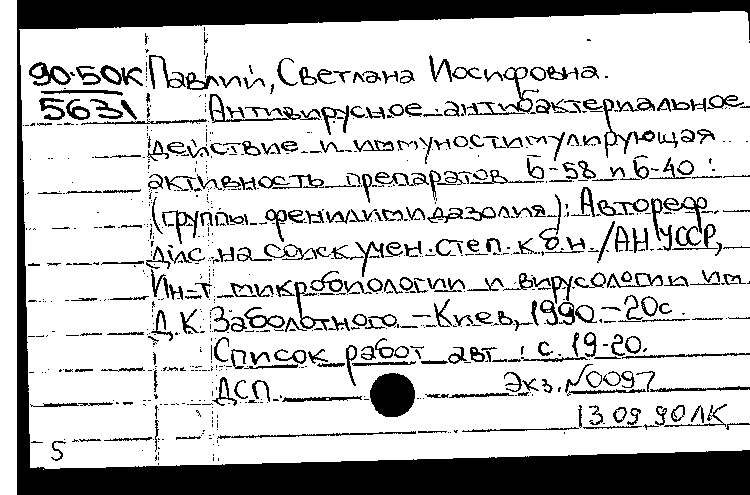 90-50К Павлий, Светлана Иосифовна.
5631 Антивирусное, антибактериальное
действие и иммуностимулирующая
активность препаратов Б-58 и Б-40:
(группы фенилимидазолия): Автореф.
дис. на соиск учен. степ. к.б.н. /АН УССР,
Ин-т микробиологии и вирусологии им
Д.К. Заболотного – Киев, 1990. – 20с.
Список работ авт.: с. 19-20.
ДСП. Экз. №0097
13.09.90 ЛК
5